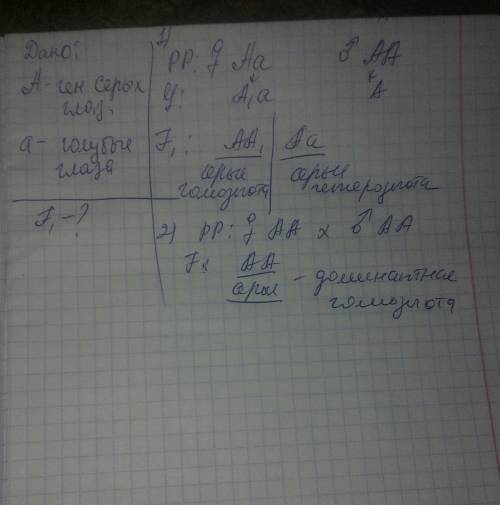 Дано:
А - ген серых
глаз.
а - голубые
глаза
F₁ - ?
1)
РР: ♀ Аа ♂ АА
G: А, а А
F₁: АА, | Аа
серые гомозигота | серые гетерозигота
2) РР: ♀ АА х ♂ АА
F: АА
серые - доминантная
гомозигота